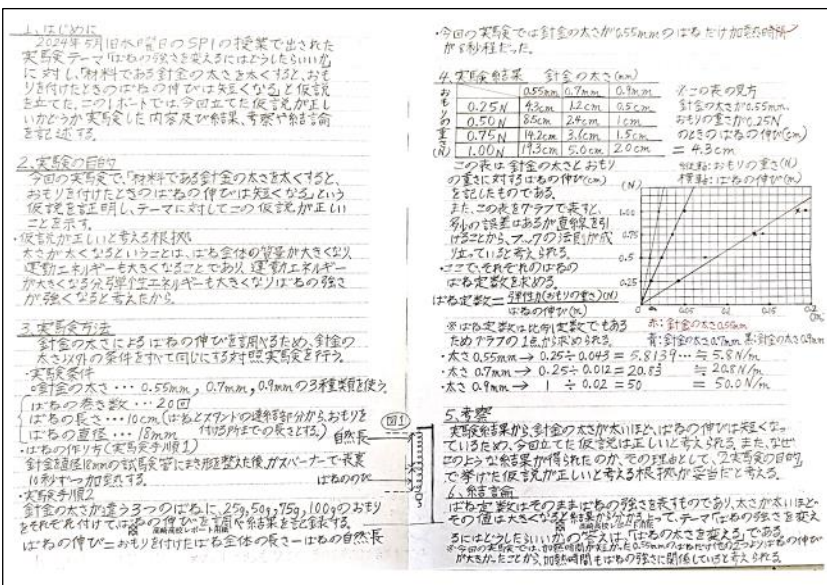 1. はじめに
2024年5月1日水曜日のSPIの授業で出された
実験テーマ「ばねの強さを変えるにはどうしたらいいか」
に対し、「材料である針金の太さを太くすると、おも
りを付けたときのばねの伸びは短くなる」と仮説
を立てた。このレポートでは、今回立てた仮説が正し
いかどうか実験した内容及び結果、考察や結言論
を記述する。
2. 実験の目的
今回の実験で、「材料である針金の太さを太くすると、
おもりを付けたときのばねの伸びは短くなる」という
仮説を証明し、テーマに対してこの仮説が正しい
ことを示す。
・仮説が正しいと考える根拠
太さが太くなるということは、ばね全体の質量が大きくなり
運動エネルギーも大きくなることであり、運動エネルギー
が大きくなる分弾性エネルギーも大きくなりばねの強さ
が強くなると考えたから。
3. 実験方法
針金の太さによるばねの伸びを調べるため、針金の
太さ以外の条件をすべて同じにする対照実験を行う。
・実験条件
○針金の太さ・・・0.55mm, 0.7mm, 0.9mmの3種類を使う。
ばねの巻き数・・・20回
ばねの長さ・・・10cm(ばねとスタンドの連結部分から、おもりを
付ける所までの長さとする。)
ばねの直径・・・18mm
・ばねの作り方(実験手順1)
針金を直径18mmの試験管にまき形を整えた後、ガスバーナーで表裏
10秒ずつ加熱する。
図1
自然長
ばねののび
・実験手順2
針金の太さが違う3つのばねに、25g, 50g, 75g, 100gのおもり
をそれぞれ付けてばねの伸びを調べ結果を記録する。
ばねの伸び=おもりを付けたばね全体の長さーばねの自然長
・今回の実験では針金の太さが0.55mmのばねだけ加熱時間
が8秒程だった。
4. 実験結果 針金の太さ(mm)
おもりの重さ(N)
0.55mm 0.7mm 0.9mm
0.25N 4.3cm 1.2cm 0.5cm
0.50N 8.5cm 2.4cm 1cm
0.75N 14.2cm 3.6cm 1.5cm
1.00N 19.3cm 5.0cm 2.0cm
※この表の見方
針金の太さが0.55mm、
おもりの重さが0.25N
のときのばねの伸び(cm)
= 4.3cm
この表は針金の太さとおもり
の重さに対するばねの伸び(cm)
を記したものである。
また、この表をグラフで表すと、
多少の誤差はあるが直線を引
けることから、フックの法則が成
り立っていると考えられる。
・ここで、それぞれのばねの
ばね定数を求める。
ばね定数=弾性力(おもりの重さ)(N)
ばねの伸び(m)
※ばね定数は比例定数でもある
ためグラフの1点から求められる。
縦軸:おもりの重さ(N)
横軸:ばねの伸び(m)
(N)
1.00
0.75
0.5
0.25
0
0.05
0.1
0.15
0.2
赤:針金の太さ0.55mm
青:針金の太さ0.7mm 黒:針金の太さ0.9mm
・太さ 0.55mm → 0.25÷0.043 = 5.8139… ≒ 5.8N/m
・太さ 0.7mm → 0.25÷0.012 = 20.83 ≒ 20.8N/m
・太さ 0.9mm → 1 ÷ 0.02 = 50 = 50.0N/m
5. 考察
実験結果から、針金の太さが太いほど、ばねの伸びは短くなっ
ているため、今回立てた仮説は正しいと考えられる。また、なぜ
このような結果が得られたのか、その理由として、「2.実験の目的」
で挙げた仮説が正しいと考える根拠が妥当だと考える。
6. 結言論
ばね定数はそのままばねの強さを表すものであり、太さが太いほど
その値は大きくなると結果から分かる。よって、テーマ「ばねの強さを変え
るにはどうしたらいいか」の答えは「ばねの太さを変える」である。
※今回の実験では、加熱時間が短かった0.55mmのばねだけ他の2つよりばねの伸び
が大きかったことから、加熱時間もばねの強さに関係していると考えられる。